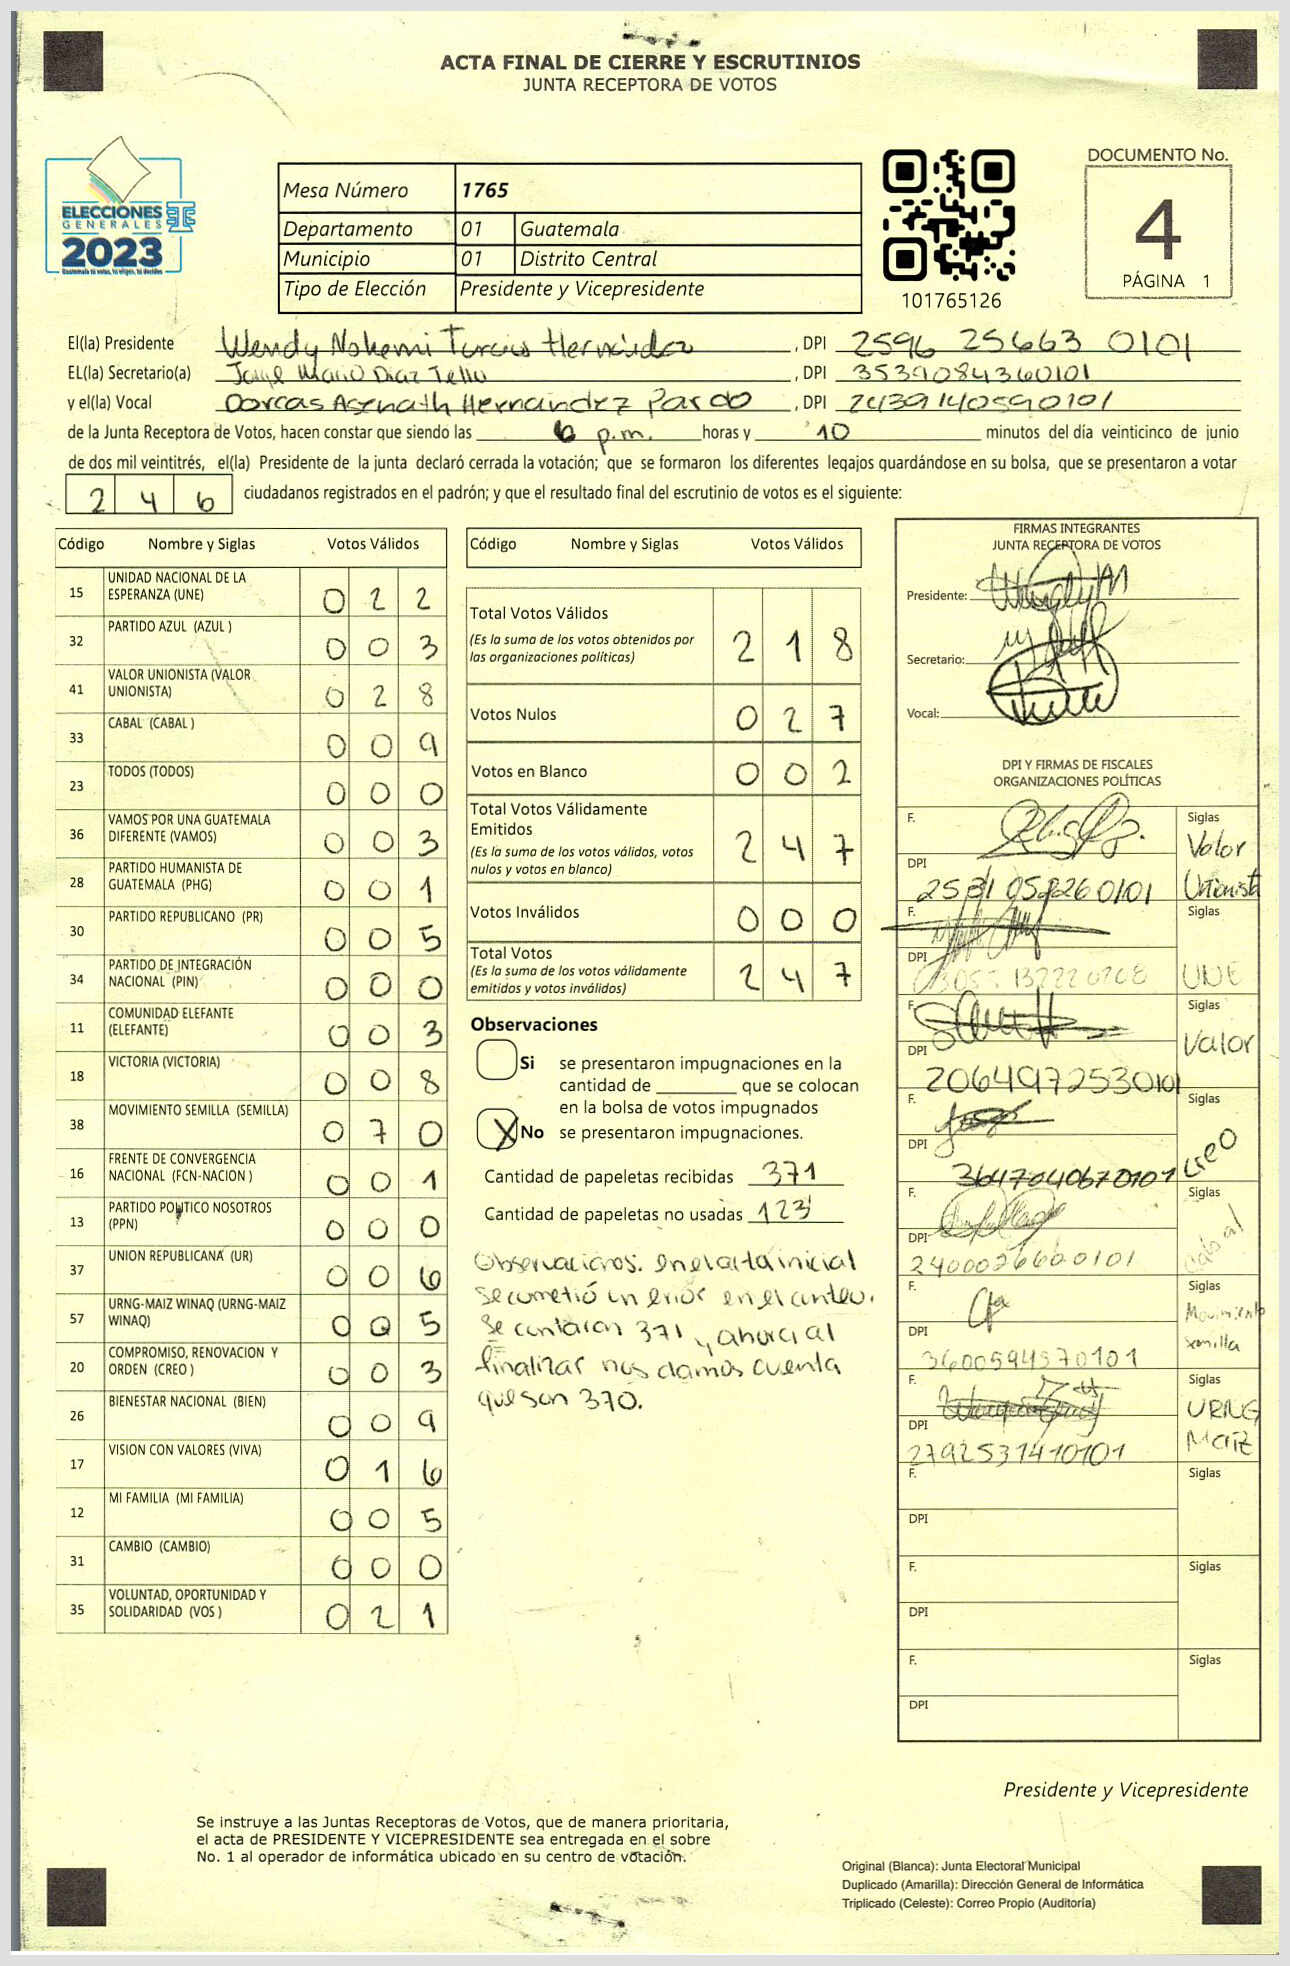 ACTA FINAL DE CIERRE Y ESCRUTINIOS
JUNTA RECEPTORA DE VOTOS
ELECCIONES
GENERALES
2023
Guatemala tú votas, tú eliges, tú decides
Mesa Número 1765
Departamento 01 Guatemala
Municipio 01 Distrito Central
Tipo de Elección Presidente y Vicepresidente
101765126
DOCUMENTO No.
4
PÁGINA 1
El(la) Presidente Wendy Nohemi Turcios Hernández , DPI 2596 25663 0101
EL(la) Secretario(a) Jorge Mario Diaz Tello , DPI 3539084360101
y el(la) Vocal Dorcas Asenath Hernandez Pardo , DPI 2439140590101
de la Junta Receptora de Votos, hacen constar que siendo las 6 p.m. horas y 10 minutos del día veinticinco de junio
de dos mil veintitrés, el(la) Presidente de la junta declaró cerrada la votación; que se formaron los diferentes legajos guardándose en su bolsa, que se presentaron a votar
2 4 6 ciudadanos registrados en el padrón; y que el resultado final del escrutinio de votos es el siguiente:
Código Nombre y Siglas Votos Válidos
15 UNIDAD NACIONAL DE LA ESPERANZA (UNE) 0 2 2
32 PARTIDO AZUL (AZUL ) 0 0 3
41 VALOR UNIONISTA (VALOR UNIONISTA) 0 2 8
33 CABAL (CABAL ) 0 0 9
23 TODOS (TODOS) 0 0 0
36 VAMOS POR UNA GUATEMALA DIFERENTE (VAMOS) 0 0 3
28 PARTIDO HUMANISTA DE GUATEMALA (PHG) 0 0 1
30 PARTIDO REPUBLICANO (PR) 0 0 5
34 PARTIDO DE INTEGRACIÓN NACIONAL (PIN) 0 0 0
11 COMUNIDAD ELEFANTE (ELEFANTE) 0 0 3
18 VICTORIA (VICTORIA) 0 0 8
38 MOVIMIENTO SEMILLA (SEMILLA) 0 7 0
16 FRENTE DE CONVERGENCIA NACIONAL (FCN-NACION ) 0 0 1
13 PARTIDO POLITICO NOSOTROS (PPN) 0 0 0
37 UNION REPUBLICANA (UR) 0 0 6
57 URNG-MAIZ WINAQ (URNG-MAIZ WINAQ) 0 0 5
20 COMPROMISO, RENOVACION Y ORDEN (CREO ) 0 0 3
26 BIENESTAR NACIONAL (BIEN) 0 0 9
17 VISION CON VALORES (VIVA) 0 1 6
12 MI FAMILIA (MI FAMILIA) 0 0 5
31 CAMBIO (CAMBIO) 0 0 0
35 VOLUNTAD, OPORTUNIDAD Y SOLIDARIDAD (VOS ) 0 2 1
Código Nombre y Siglas Votos Válidos
Total Votos Válidos 2 1 8
(Es la suma de los votos obtenidos por
las organizaciones políticas)
Votos Nulos 0 2 7
Votos en Blanco 0 0 2
Total Votos Válidamente
Emitidos 2 4 7
(Es la suma de los votos válidos, votos
nulos y votos en blanco)
Votos Inválidos 0 0 0
Total Votos 2 4 7
(Es la suma de los votos válidamente
emitidos y votos inválidos)
Observaciones
Si se presentaron impugnaciones en la
cantidad de ________ que se colocan
en la bolsa de votos impugnados
X No se presentaron impugnaciones.
Cantidad de papeletas recibidas 371
Cantidad de papeletas no usadas 123
Observaciones: en el acta inicial
se cometió un error en el conteo.
Se contaron 371 y ahora al
finalizar nos damos cuenta
que son 370.
FIRMAS INTEGRANTES
JUNTA RECEPTORA DE VOTOS
Presidente:
Secretario:
Vocal:
DPI Y FIRMAS DE FISCALES
ORGANIZACIONES POLÍTICAS
F. Siglas Valor Unionista
DPI 0101
F. Siglas UNE
DPI
F. Siglas Valor
DPI 2064972530101
F. Siglas Creo
DPI 3647040670101
F. Siglas Cabal
DPI 2400026600101
F. Siglas Movimiento semilla
DPI 3600594570101
F. Siglas URNG Maiz
DPI 2792531410101
F. Siglas
DPI
F. Siglas
DPI
F. Siglas
DPI
Presidente y Vicepresidente
Se instruye a las Juntas Receptoras de Votos, que de manera prioritaria,
el acta de PRESIDENTE Y VICEPRESIDENTE sea entregada en el sobre
No. 1 al operador de informática ubicado en su centro de votación.
Original (Blanca): Junta Electoral Municipal
Duplicado (Amarilla): Dirección General de Informática
Triplicado (Celeste): Correo Propio (Auditoría)